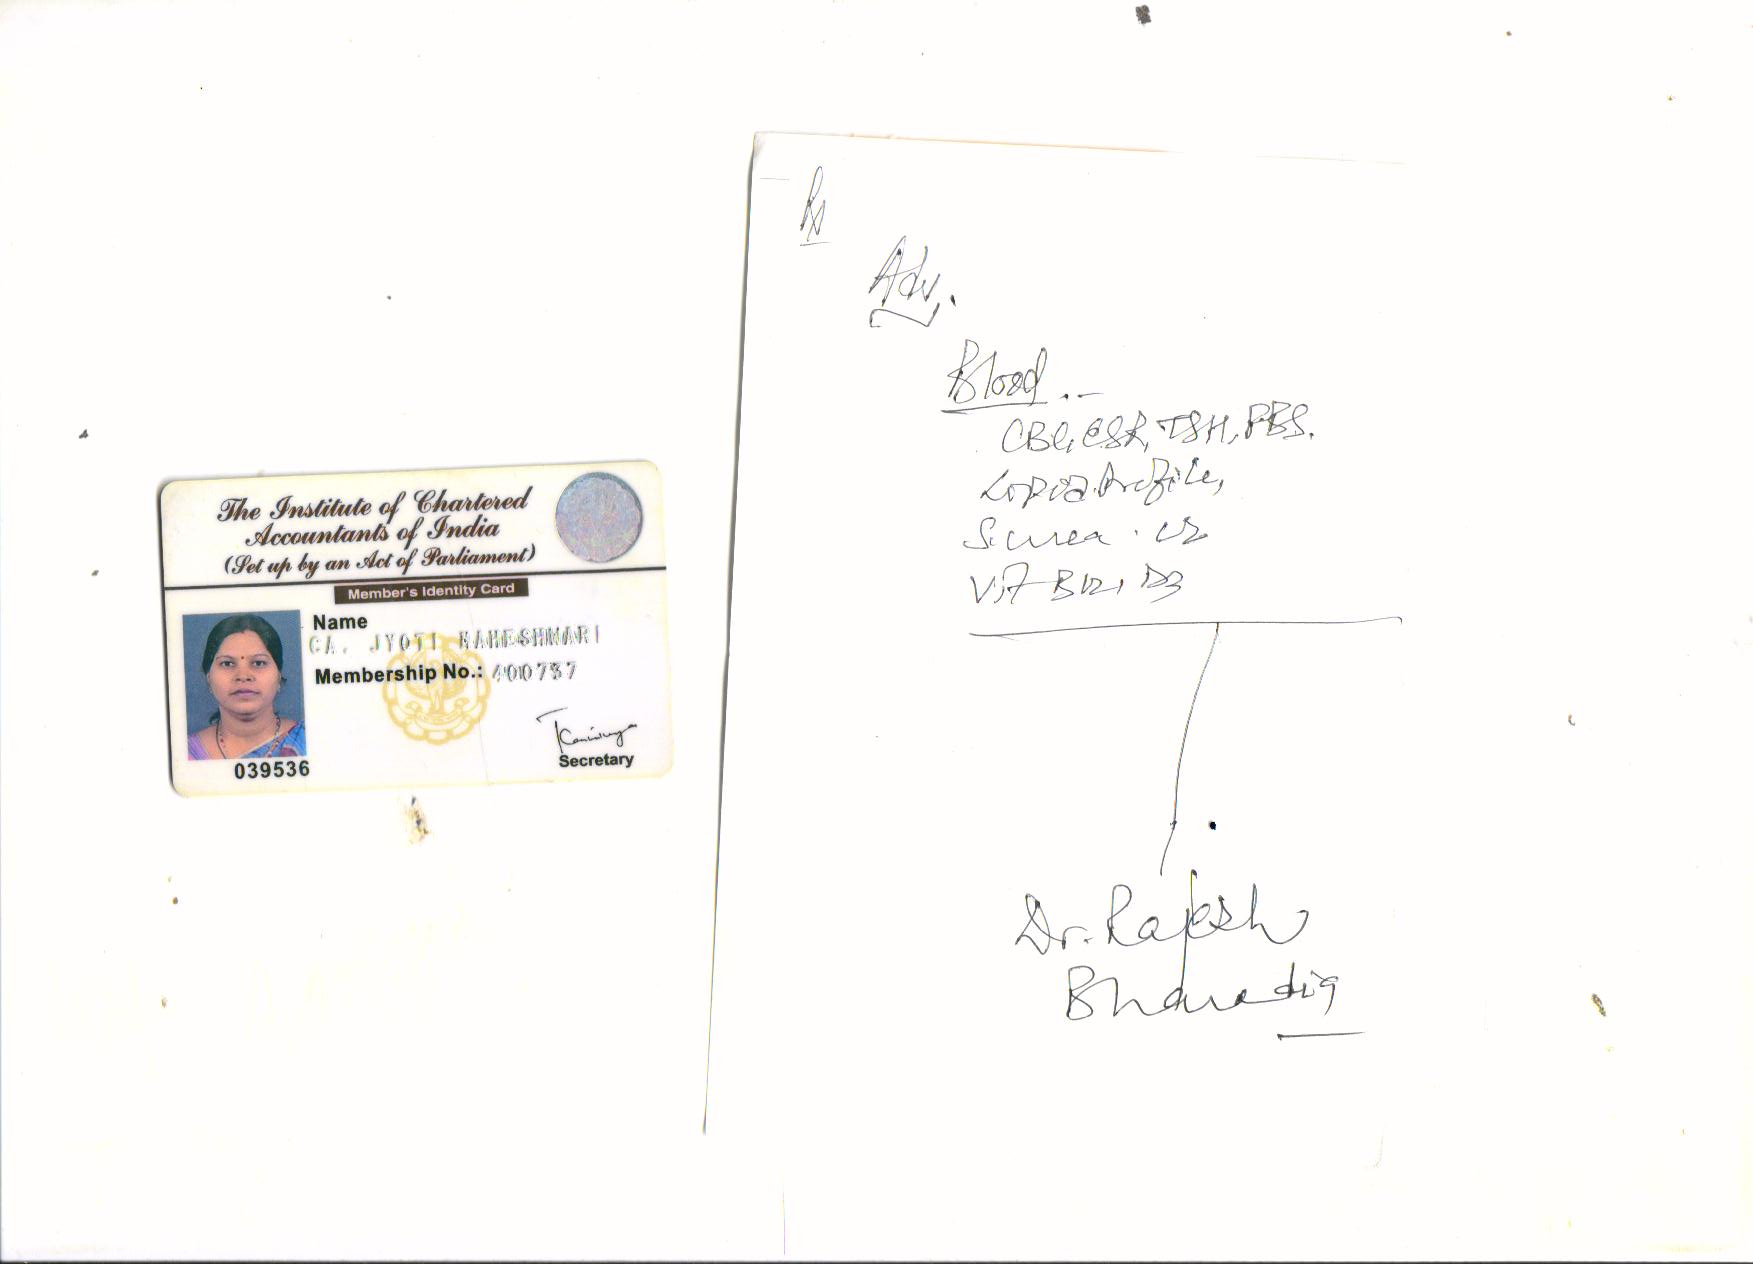 The Institute of Chartered
Accountants of India
(Set up by an Act of Parliament)
Member's Identity Card
Name
CA. JYOTI MAHESHWARI
Membership No.: 400737
Secretary
039536
Rx
Adv.
Blood
CBC, ESR, TSH, PBS.
Lipid Profile,
S. urea
Vit B12, D3
Dr. Rajesh